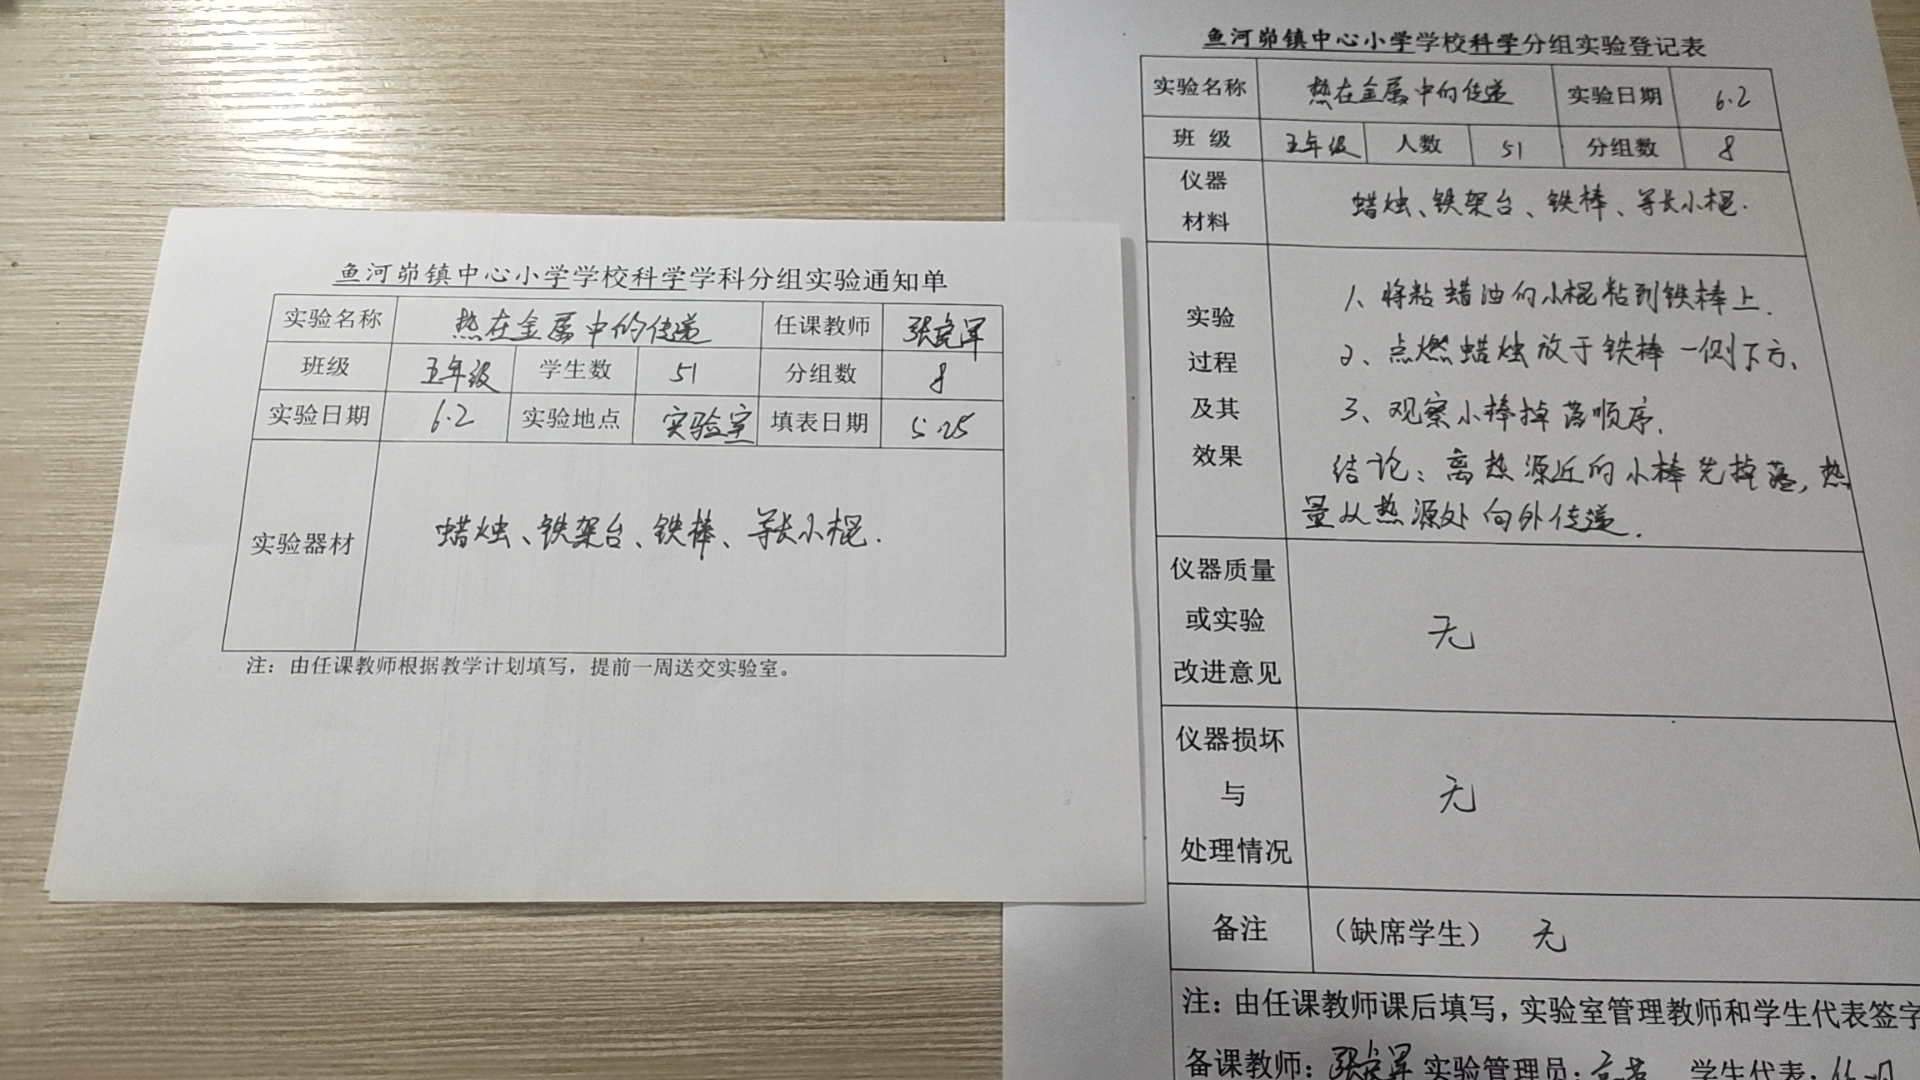 鱼河峁镇中心小学学校科学学科分组实验通知单
实验名称 热在金属中的传递 任课教师
班级 五年级 学生数 51 分组数 8
实验日期 6.2 实验地点 实验室 填表日期 5.25
实验器材 蜡烛、铁架台、铁棒、等长小棍.
注：由任课教师根据教学计划填写，提前一周送交实验室。
鱼河峁镇中心小学学校科学分组实验登记表
实验名称 热在金属中的传递 实验日期 6.2
班 级 五年级 人数 51 分组数 8
仪器
材料
蜡烛、铁架台、铁棒、等长小棍.
实验
过程
及其
效果
1、将粘蜡油的小棍粘到铁棒上.
2、点燃蜡烛放于铁棒一侧下方、
3、观察小棒掉落顺序.
结论：离热源近的小棒先掉落，热
量从热源处向外传递.
仪器质量
或实验
改进意见
无
仪器损坏
与
处理情况
无
备注 （缺席学生） 无
注：由任课教师课后填写，实验室管理教师和学生代表签字
备课教师： 实验管理员： 学生代表：